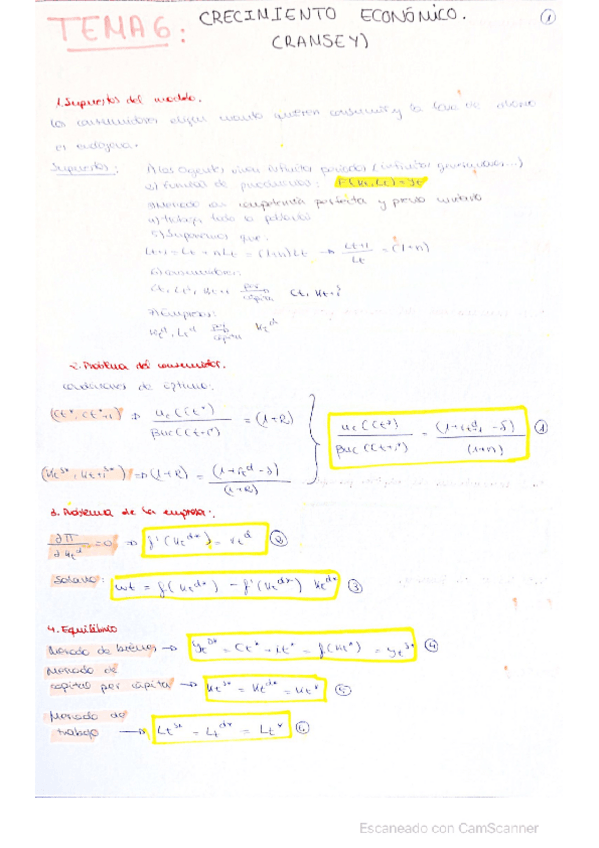 TEMA 6: CRECIMIENTO ECONÓMICO. 1
(RAMSEY)
1. Supuestos del modelo.
Los consumidores eligen cuanto quieren consumir y la tasa de ahorro
es endógena.
Supuestos: 1) Los agentes viven infinitos periodos (infinitas generaciones...)
2) Función de producción: F(Kt, Lt) = Yt
3) Mercado en competencia perfecta y precio unitario
4) Trabaja toda la población
5) Suponemos que:
Lt+1 = Lt + nLt = (1+n)Lt → Lt+1 / Lt = (1+n)
6) Consumidores:
per cápita
7) Empresas:
Ktd, Ltd per cápita ktd
2. Problema del consumidor.
condiciones de óptimo:
(Ct*, Ct+1*) ⇒ uc(Ct*) / βuc(Ct+1*) = (1+R)
uc(Ct*) / βuc(Ct+1*) = / (1+n) 1
⇒ (1+R) =
3. Problema de la empresa:
∂Π / ∂ktd = 0 ⇒ f'(ktd*) = rtd 2
Salario: wt = f(ktd*) - f'(ktd*) ktd* 3
4. Equilibrio
Mercado de bienes → yts* = Ct* + it* = f(kt*) = yts* 4
Mercado de
capital per cápita → kts* = ktd* = kt* 5
Mercado de
trabajo → Lts* = Ltd* = Lt* 6
Escaneado con CamScanner